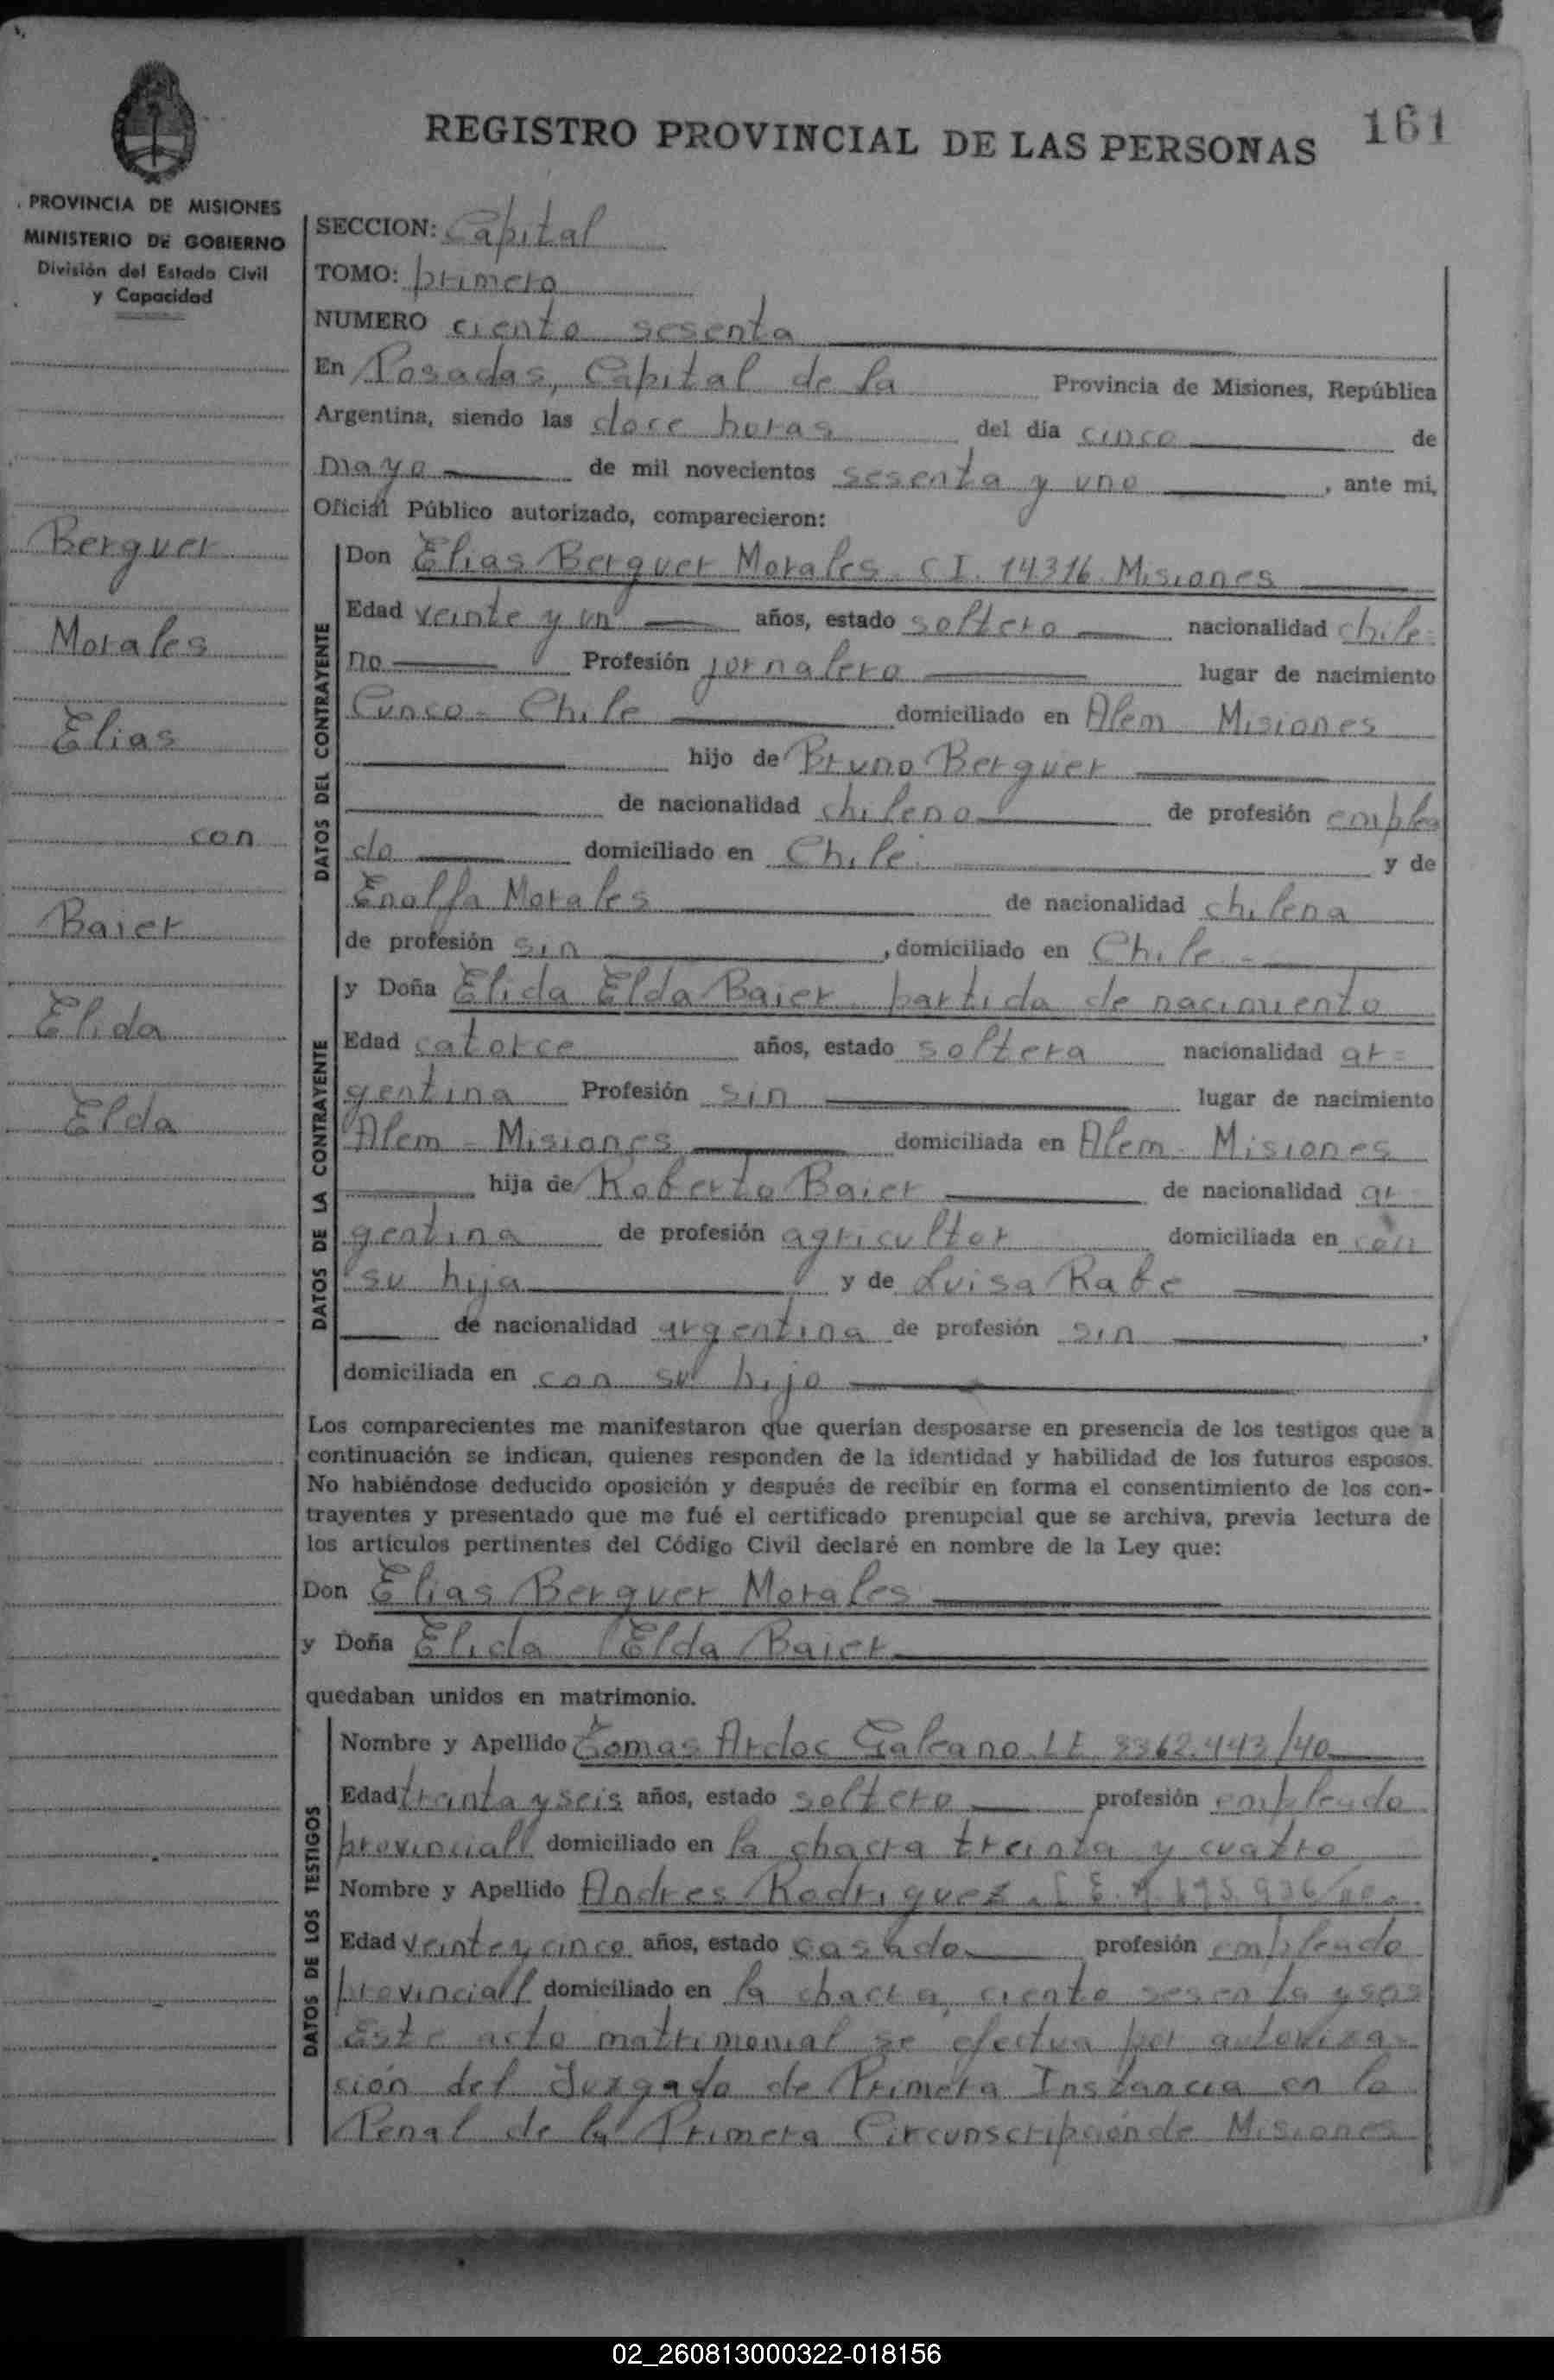 REGISTRO PROVINCIAL DE LAS PERSONAS
161
PROVINCIA DE MISIONES
MINISTERIO DE GOBIERNO
División del Estado Civil
y Capacidad
Berguer
Morales
Elias
con
Baier
Elida
Elda
SECCION: Capital
TOMO: primero
NUMERO ciento sesenta
En Posadas, Capital de la Provincia de Misiones, República
Argentina, siendo las doce horas del día cinco de
mayo de mil novecientos sesenta y uno, ante mi,
Oficial Público autorizado, comparecieron:
DATOS DEL CONTRAYENTE
Don Elias Berguer Morales. C I. 14316. Misiones
Edad veinte y un años, estado soltero nacionalidad chile=
no Profesión jornalero lugar de nacimiento
Cunco - Chile domiciliado en Alem Misiones
hijo de Bruno Berguer
de nacionalidad chileno de profesión emplea
do domiciliado en Chile y de
Enolfa Morales de nacionalidad chilena
de profesión sin, domiciliado en Chile -
DATOS DE LA CONTRAYENTE
y Doña Elida Elda Baier. partida de nacimiento
Edad catorce años, estado soltera nacionalidad ar=
gentina Profesión sin lugar de nacimiento
Alem - Misiones domiciliada en Alem - Misiones
hija de Roberto Baier de nacionalidad ar
gentina de profesión agricultor domiciliada en con
su hija y de Luisa Rabe
de nacionalidad argentina de profesión sin,
domiciliada en con su hijo
Los comparecientes me manifestaron que querían desposarse en presencia de los testigos que a
continuación se indican, quienes responden de la identidad y habilidad de los futuros esposos.
No habiéndose deducido oposición y después de recibir en forma el consentimiento de los con-
trayentes y presentado que me fué el certificado prenupcial que se archiva, previa lectura de
los artículos pertinentes del Código Civil declaré en nombre de la Ley que:
Don Elias Berguer Morales
y Doña Elida Elda Baier
quedaban unidos en matrimonio.
DATOS DE LOS TESTIGOS
Nombre y Apellido Tomas Galeano. L E
Edad treinta y seis años, estado soltero profesión empleado
provincial domiciliado en la chacra treinta y cuatro
Nombre y Apellido Andres Rodriguez.
Edad veinte y cinco años, estado casado profesión empleado
provincial domiciliado en la chacra, ciento sesenta y seis
Este acto matrimonial se efectua por autoriza=
ción del Juzgado de Primera Instancia en lo
Penal de la Primera Circunscripción de Misiones
02_260813000322-018156